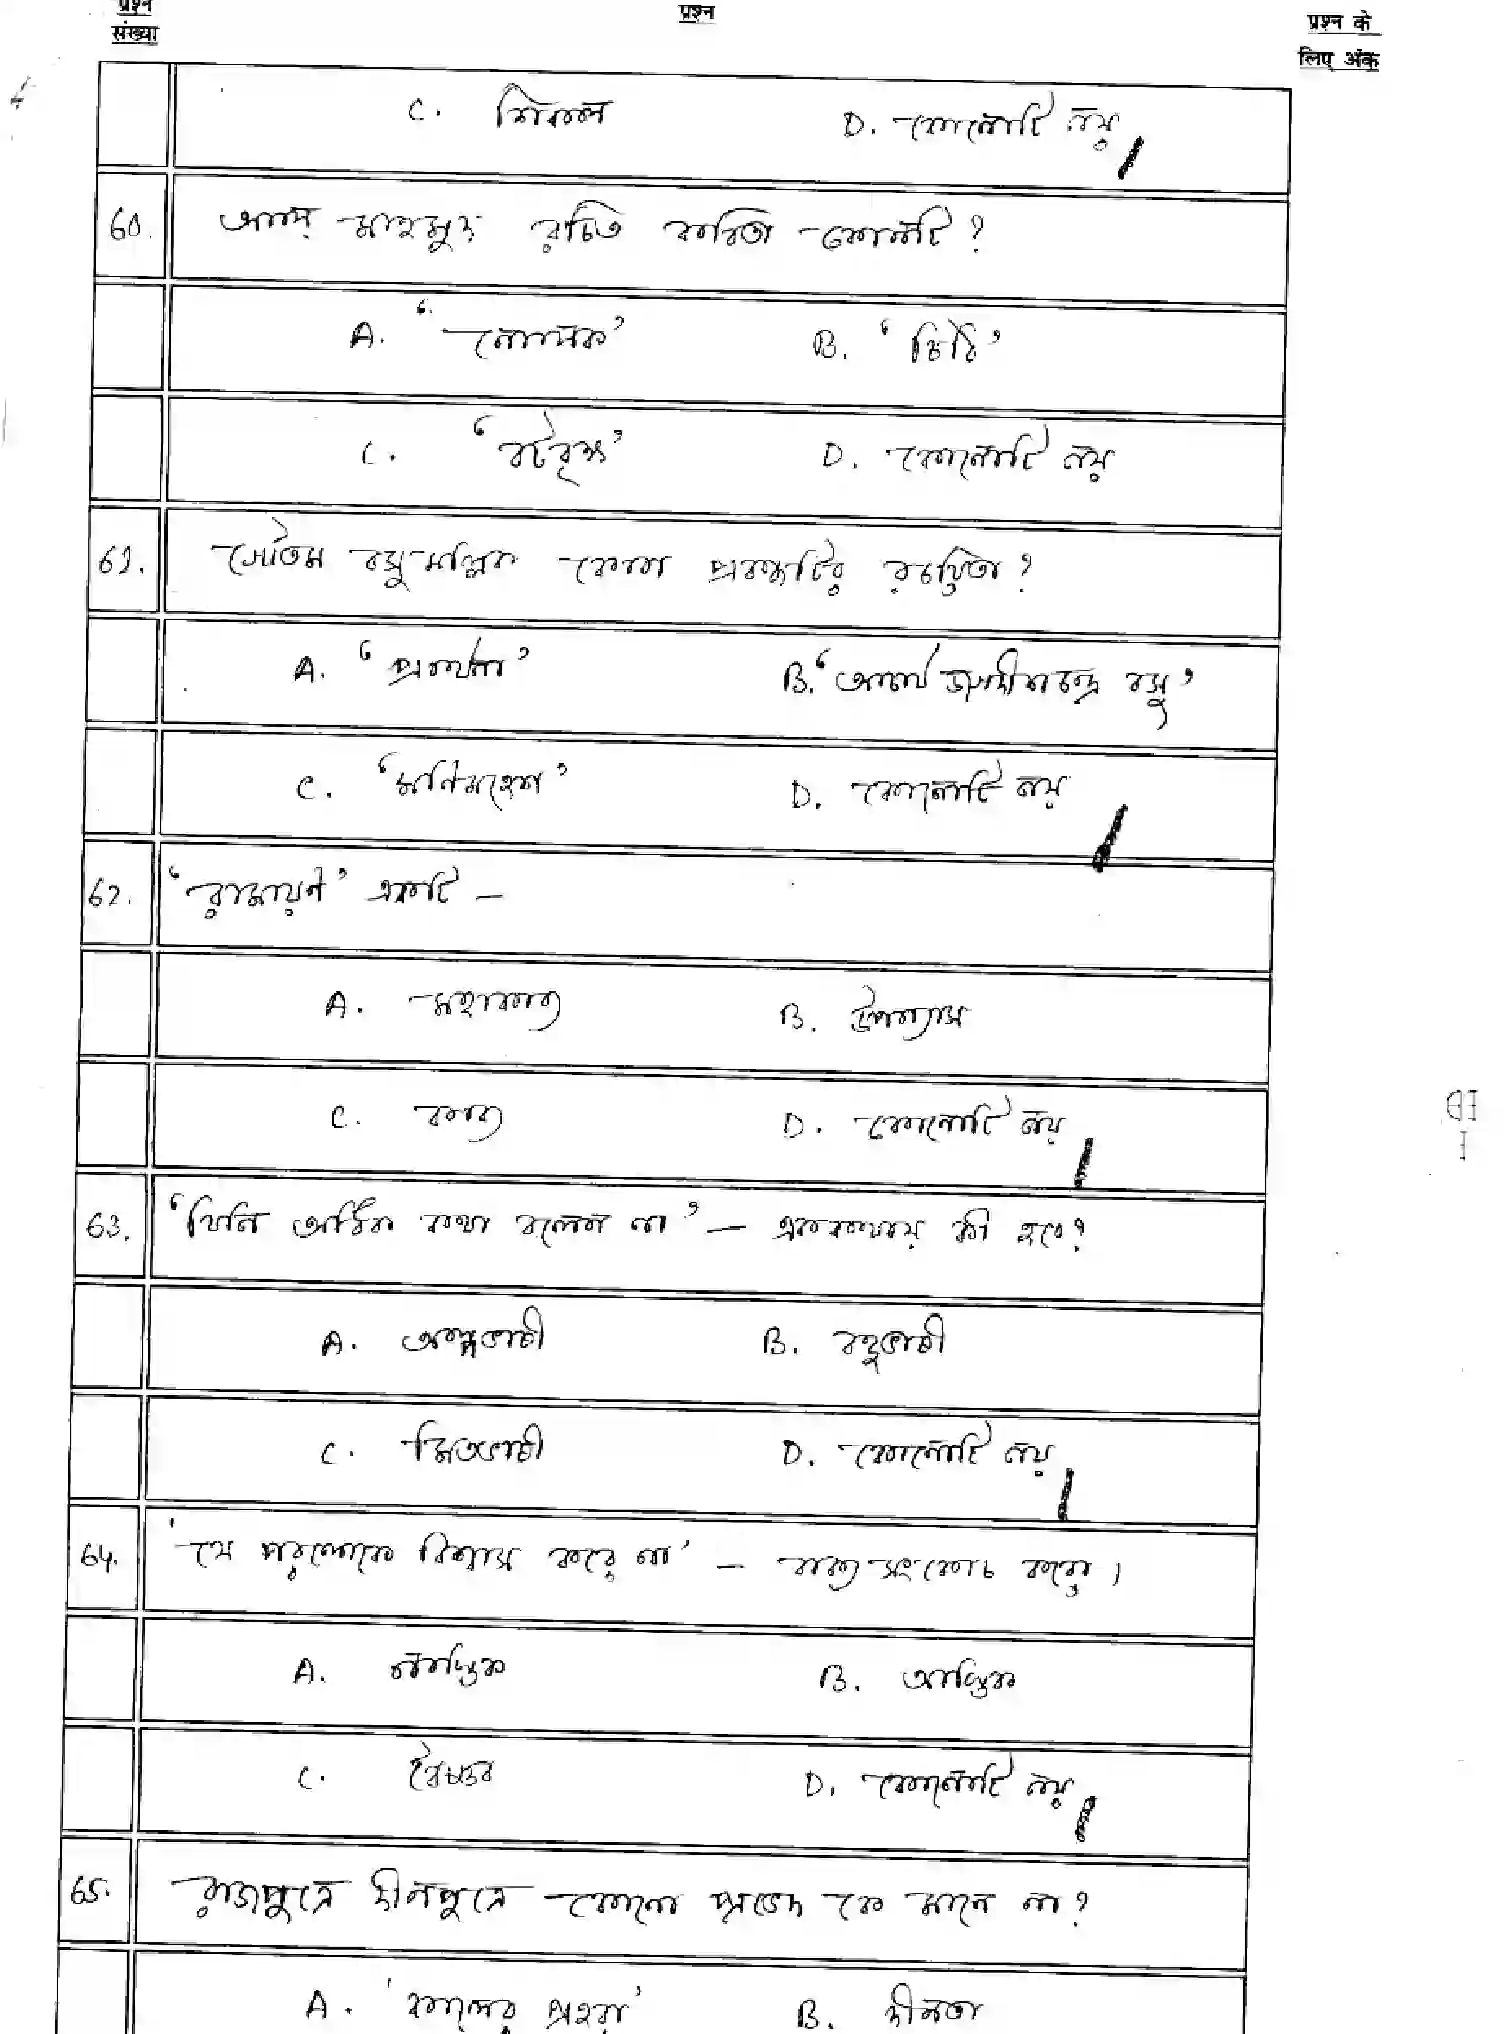 प्रश्न संख्या
प्रश्न
प्रश्न के लिए अंक
C. শিকল D. কোনোটি নয়
60. আল মাহমুদ রচিত কবিতা কোনটি?
A. ‘নোলক’ B. ‘চিঠি’
C. ‘বটবৃক্ষ’ D. কোনোটি নয়
61. গৌতম বসুমল্লিক কোন প্রবন্ধটির রচয়িতা?
A. ‘প্রার্থনা’ B. ‘আচার্য জগদীশচন্দ্র বসু’
C. ‘মনিমহেশ’ D. কোনোটি নয়
62. ‘রামায়ন’ একটি —
A. মহাকাব্য B. উপন্যাস
C. কাব্য D. কোনোটি নয়
63. ‘যিনি অধিক কথা বলেন না’ — এককথায় কী হবে?
A. অল্পভাষী B. বহুভাষী
C. মিতভাষী D. কোনোটি নয়
64. ‘যে পরলোকে বিশ্বাস করে না’ — বাক্য সংকোচ করো।
A. নাস্তিক B. আস্তিক
C. বৈষ্ণব D. কোনোটি নয়
65. রাজপুত্রে দীনপুত্রে কোনো প্রভেদ কে মানে না?
A. ‘কালের প্রহরা’ B. দীনতা